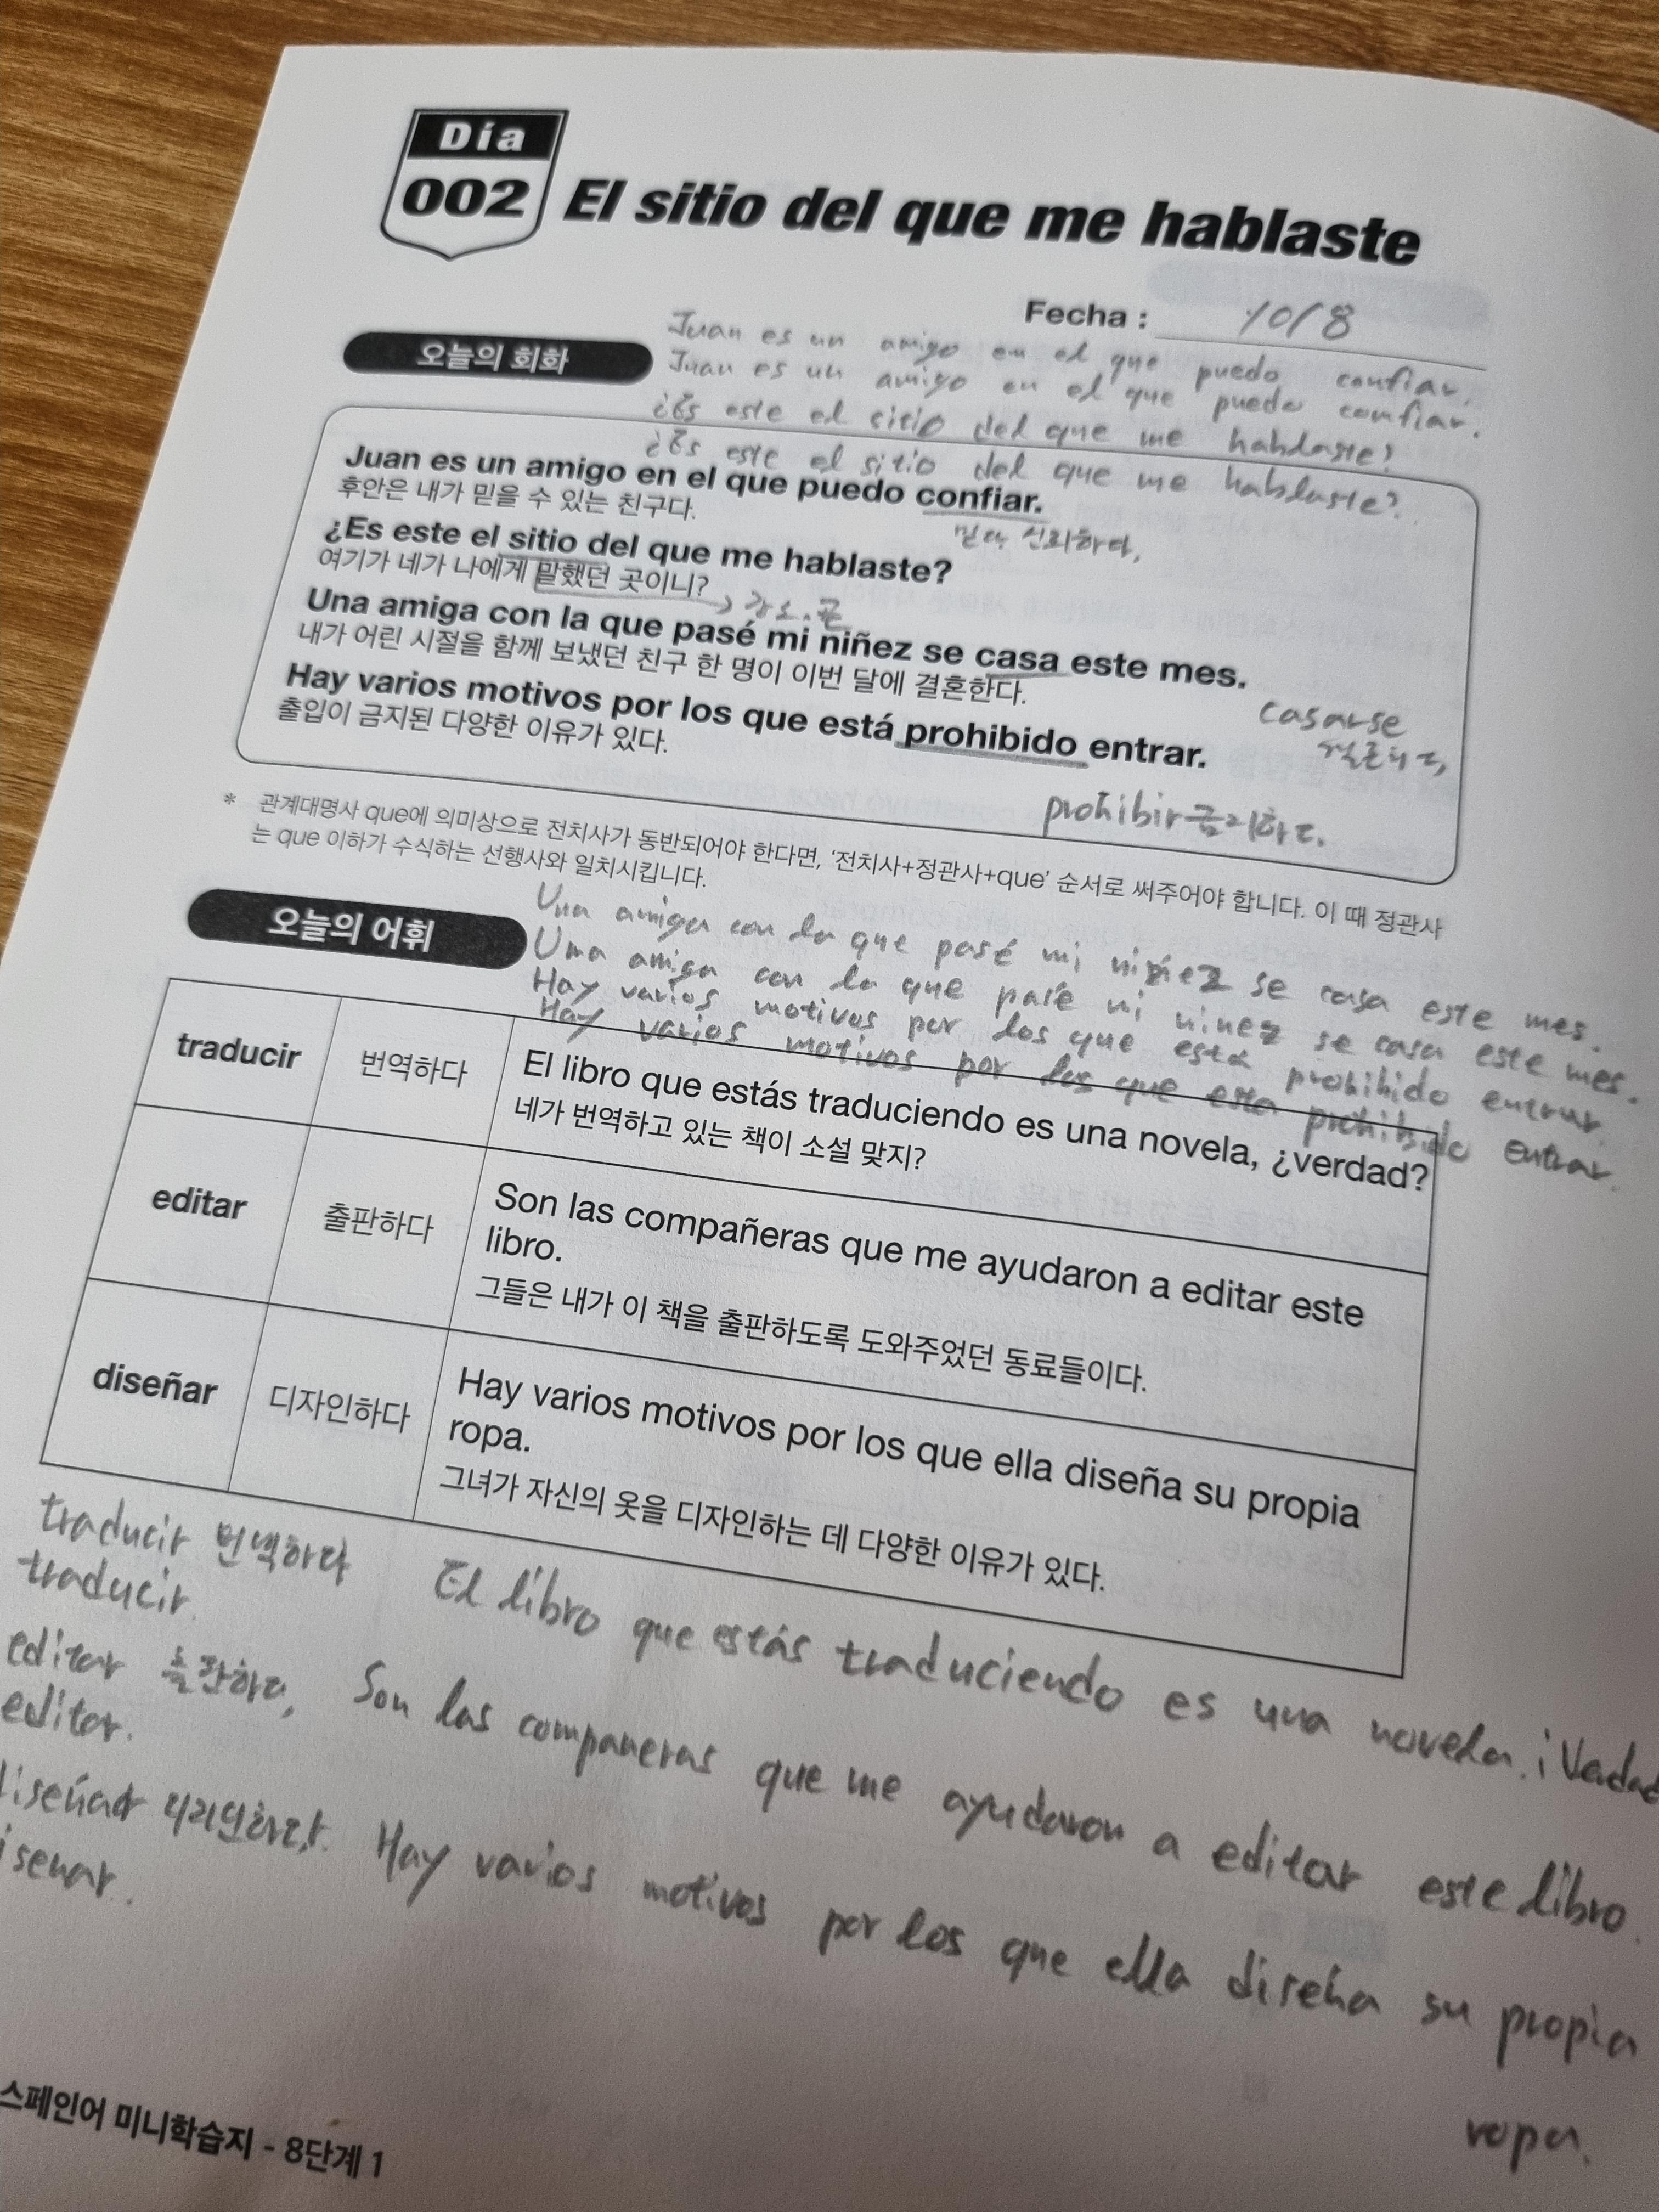 Día
002 El sitio del que me hablaste
Fecha : 10/8
오늘의 회화
Juan es un amigo en el que puedo confiar.
Juan es un amigo en el que puedo confiar.
¿Es este el sitio del que me hablaste?
¿Es este el sitio del que me hablaste?
Juan es un amigo en el que puedo confiar.
후안은 내가 믿을 수 있는 친구다.
믿다, 신뢰하다,
¿Es este el sitio del que me hablaste?
여기가 네가 나에게 말했던 곳이니?
장소, 곳
Una amiga con la que pasé mi niñez se casa este mes.
내가 어린 시절을 함께 보냈던 친구 한 명이 이번 달에 결혼한다.
casarse
결혼하다,
Hay varios motivos por los que está prohibido entrar.
출입이 금지된 다양한 이유가 있다.
prohibir 금지하다.
* 관계대명사 que에 의미상으로 전치사가 동반되어야 한다면, ‘전치사+정관사+que’ 순서로 써주어야 합니다. 이 때 정관사
는 que 이하가 수식하는 선행사와 일치시킵니다.
오늘의 어휘
Una amiga con la que pasé mi niñez se casa este mes.
Una amiga con la que pasé mi ninez se casa este mes.
Hay varios motivos por los que está prohibido entrar.
Hay varios motivos por los que esta prohibido entrar.
traducir 번역하다 El libro que estás traduciendo es una novela, ¿verdad?
네가 번역하고 있는 책이 소설 맞지?
editar 출판하다 Son las compañeras que me ayudaron a editar este
libro.
그들은 내가 이 책을 출판하도록 도와주었던 동료들이다.
diseñar 디자인하다 Hay varios motivos por los que ella diseña su propia
ropa.
그녀가 자신의 옷을 디자인하는 데 다양한 이유가 있다.
traducir 번역하다 El libro que estás traduciendo es una novela. ¡Verdad
traducir.
editar 출판하다, Son las companeras que me ayudaron a editar este libro.
editar.
diseñar 디자인하다. Hay varios motivos por los que ella diseña su propia
isenar.
ropa.
스페인어 미니학습지 - 8단계 1